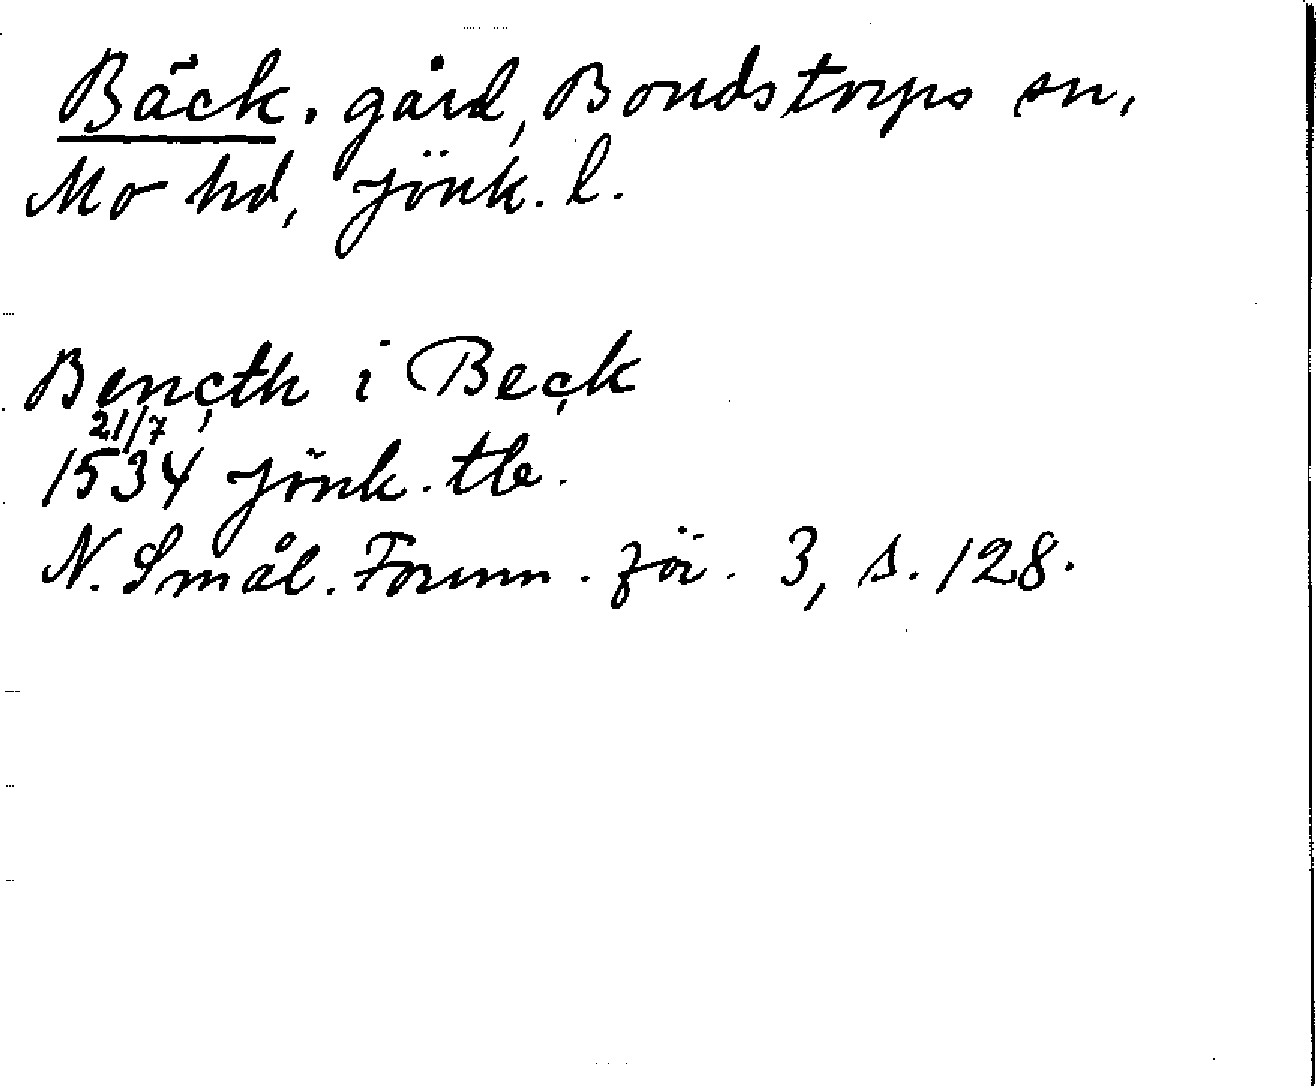 Bäck. gård, Bondstorps sn,
Mo hd, Jönk. l.
Bencth i Beck
21/7
1534 Jönk. tb.
N. Smål. Fornm. för. 3, s. 128.